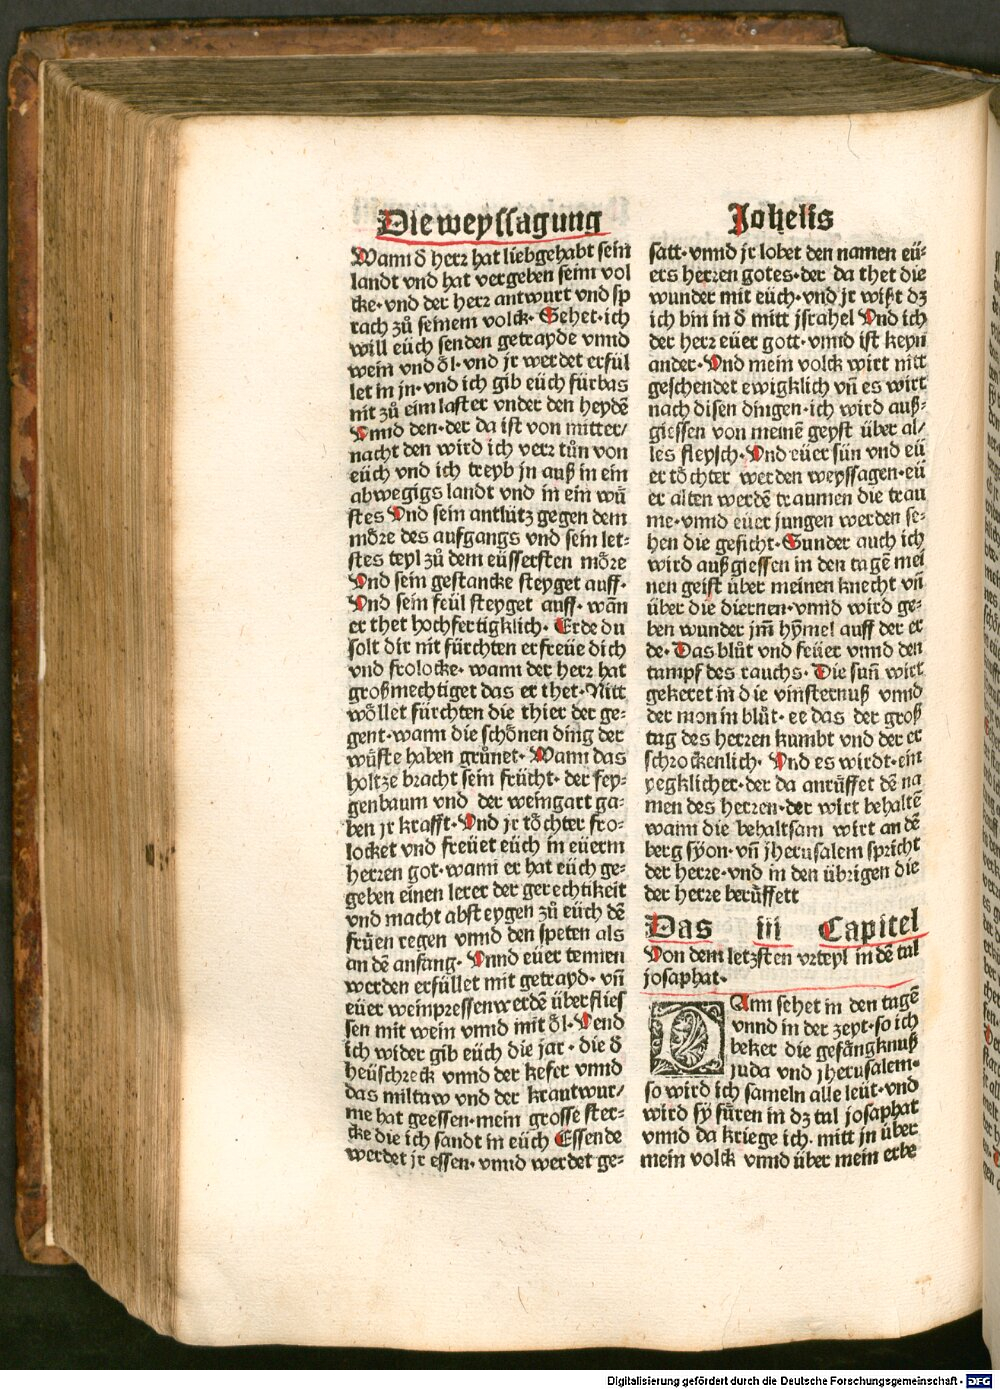 Die weyssagung
Johelis
Wann d̕ herr hat liebgehabt sein
landt vnd hat vergeben seim vol
cke·vnd der herr antwurt vnd sp
rach zů seinem volck· Sehet·ich
will eüch senden getrayde vnnd
wein vnd öl·vnd jr werdet erfül
let in jn·vnd ich gib eüch fürbas
nit zů eim laster vnder den heydē
Vnnd den·der da ist von mitter/
nacht den wird ich verr tůn von
eüch vnd ich treyb jn auß in ein
abwegigs landt vnd in ein wů
stes Vnd sein antlütz gegen dem
möre des aufgangs vnd sein let-
stes teyl zů dem eüssersten möre
Vnd sein gestancke steyget auff·
Vnd sein feül steyget auff· wān
er thet hochfertigklich· Erde du
solt dir nit fürchten erfreüe dich
vnd frolocke· wann der herr hat
großmechtiget das er thet·Nitt
wöllet fürchten die thier der ge-
gent·wann die schönen ding der
wůste haben grůnet· Wann das
holtze bracht sein frücht· der fey-
genbaum vnd der weingart ga-
ben jr krafft·Vnd jr töchter fro-
locket vnd freüet eüch in eüerm
herren got·wann er hat eüch ge-
geben einen lerer der gerechtikeit
vnd macht absteygen zů eüch dē
früen regen vnnd den speten als
an dē anfang· Vnnd eüer tennen
werden erfüllet mit getrayd·vn̄
eüer weinpressen werdē überflies
sen mit wein vnnd mit öl·Vend
ich wider gib eüch die jar·die d̕
heüschreck vnnd der kefer vnnd
das miltaw vnd der krautwur/
me hat geessen·mein grosse ster-
cke die ich sandt in eüch Essende
werdet jr essen·vnnd werdet ge-
satt·vnnd jr lobet den namen eü-
ers herren gotes·der da thet die
wunder mit eüch·vnd jr wißt dz
ich bin in d̕ mitt jsrahel Vnd ich
der herr eüer gott·vnnd ist keyn
ander·Vnd mein volck wirt nitt
geschendet ewigklich vn̄ es wirt
nach disen dingen·ich wird auß-
giessen von meinē geyst über al/
les fleysch·Vnd eüer sün vnd eü
er töchter werden weyssagen·eü
er alten werdē traumen die trau
me·vnnd eüer jungen werden se-
hen die gesicht·Sunder auch ich
wird außgiessen in den tagē mei
nen geist über meinen knecht vn̄
über die diernen·vnnd wird ge-
ben wunder jm̄ hym̄el auff der er
de·Das blůt vnd feüer vnnd den
tampf des rauchs·Die sun̄ wirt
gekeret in die vinsternuß vnnd
der mon in blůt·ee das der groß
tag des herren kumbt vnd der er
schrockenlich· Vnd es wirdt·ein
yegklicher·der da anrüffet dē na
men des herren·der wirt behaltē
wann die behaltsam wirt an dē
berg syon·vn̄ jherusalem spricht
der herre·vnd in den übrigen die
der herre berüffett
Das iii Capitel
Von dem letzsten vrteyl in dē tal
josaphat·
DAnn sehet in den tagē
vnnd in der zeyt·so ich
beker die gefängknuß
juda vnd jherusalem·
so wird ich sameln alle leüt·vnd
wird sy füren in dz tal josaphat
vnnd da kriege ich· mitt jn über
mein volck vnnd über mein erbe
Digitalisierung gefördert durch die Deutsche Forschungsgemeinschaft - DFG